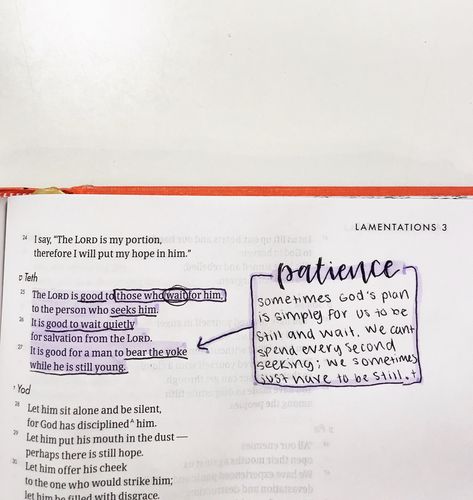 LAMENTATIONS 3
24 I say, "The LORD is my portion,
therefore I will put my hope in him."
ט Teth
25 The LORD is good to those who wait for him,
to the person who seeks him.
26 It is good to wait quietly
for salvation from the LORD.
27 It is good for a man to bear the yoke
while he is still young.
י Yod
28 Let him sit alone and be silent,
for God has disciplined^ him.
29 Let him put his mouth in the dust —
perhaps there is still hope.
30 Let him offer his cheek
to the one who would strike him;
let him be filled with disgrace.
patience
sometimes God's plan
is simply for us to be
still and wait. we cant
spend every second
seeking; we sometimes
just have to be still.